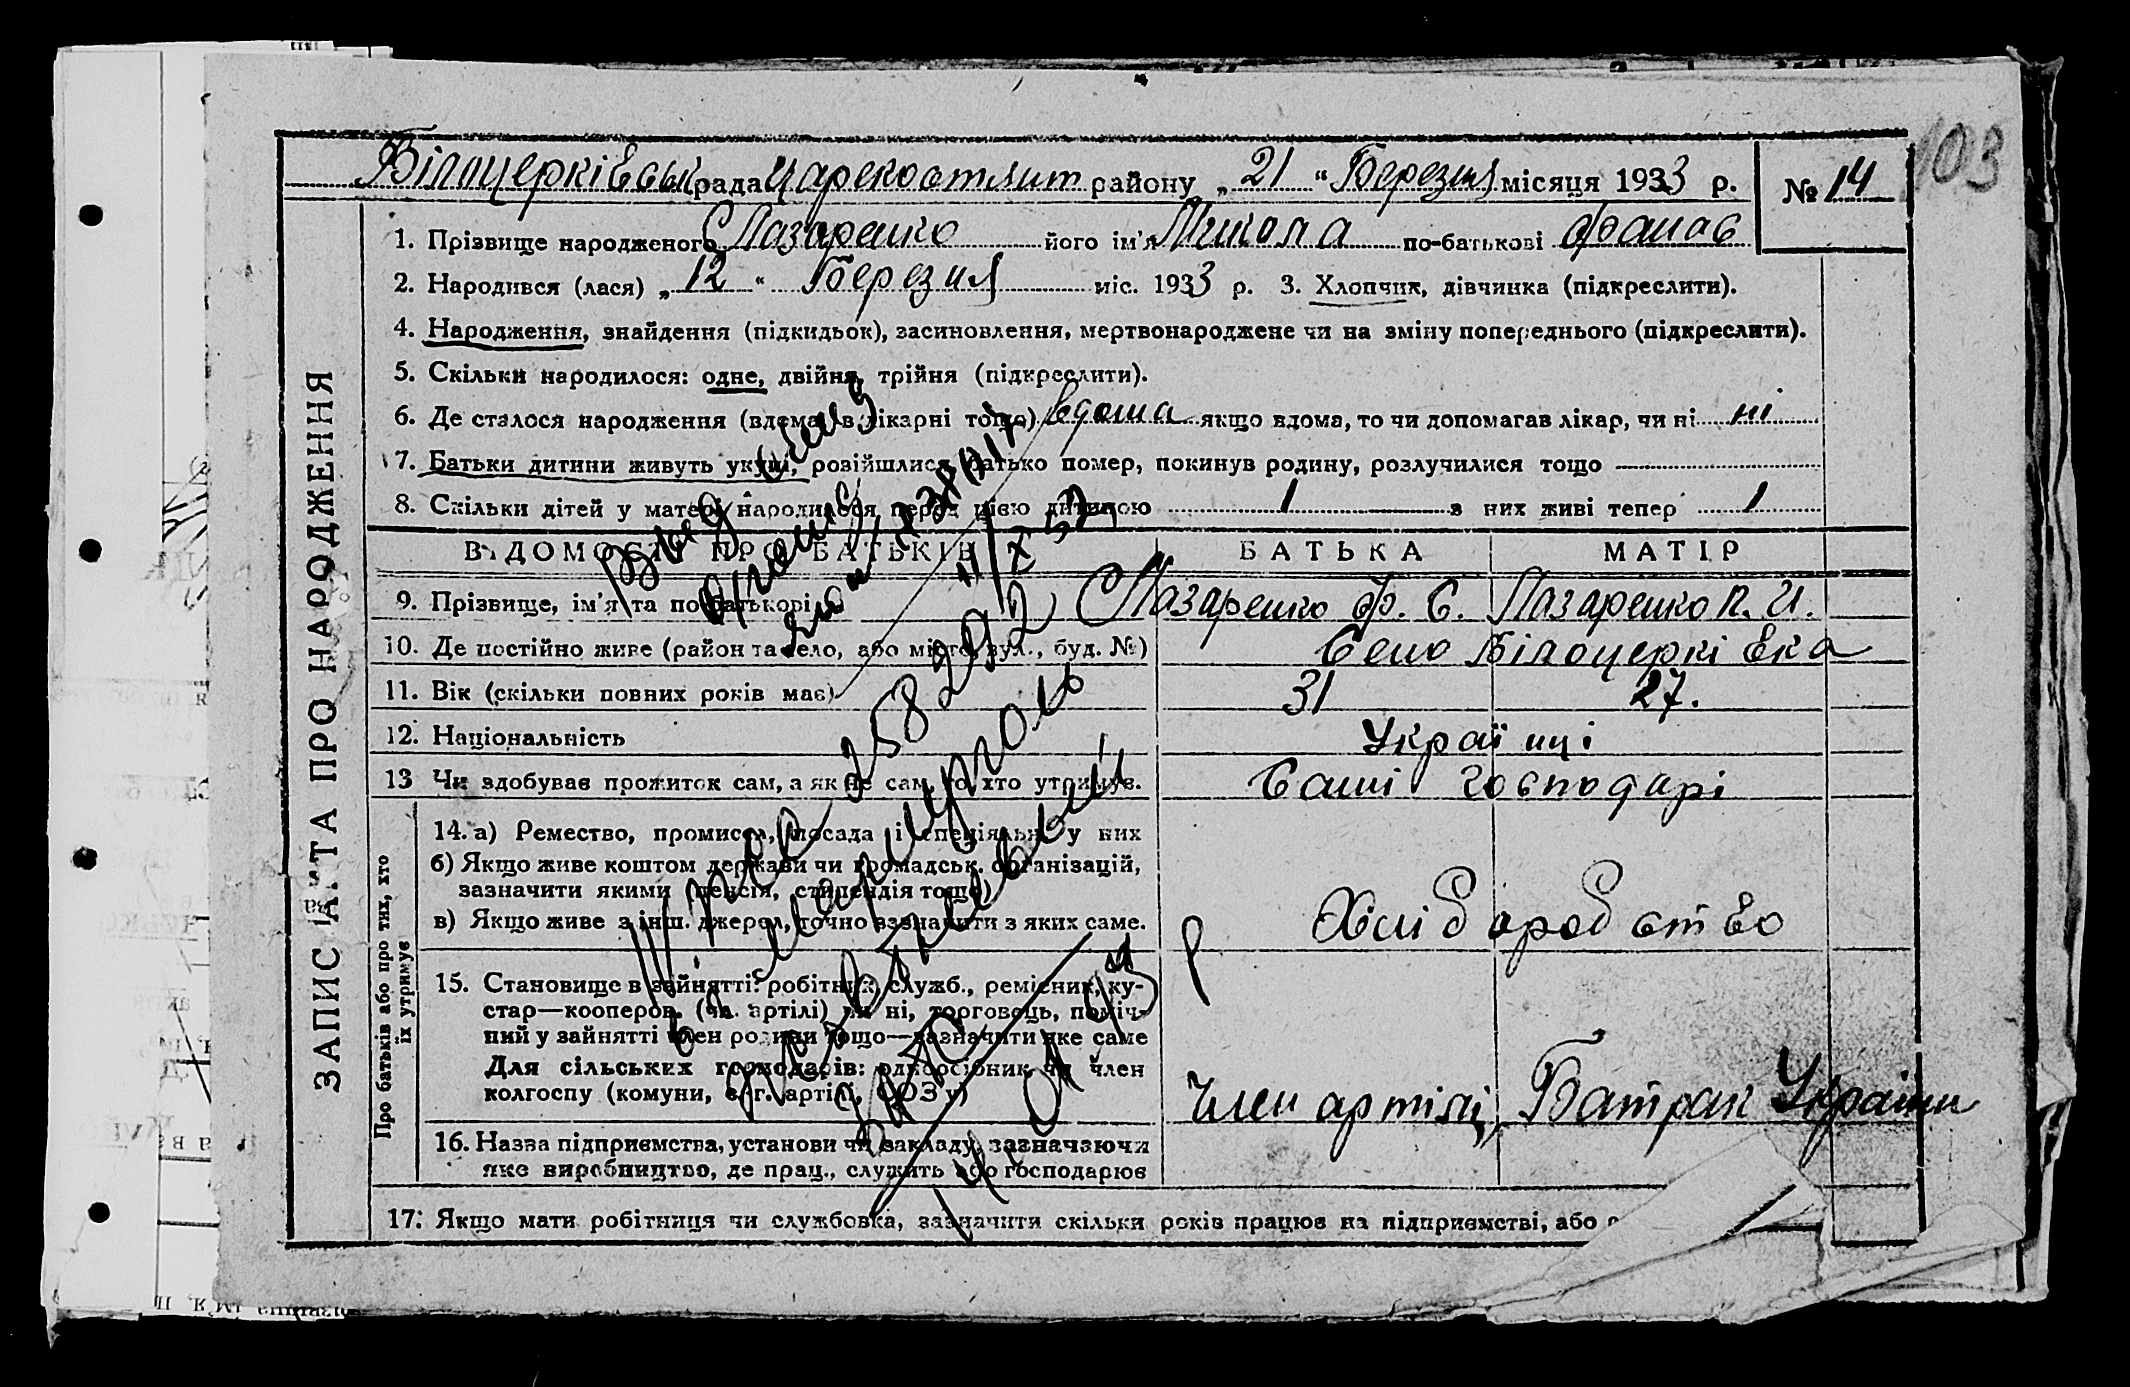 103
Білоцерківськ рада Царекостянт району „ 21 “ Березня місяця 1933 р. № 14
ЗАПИС АКТА ПРО НАРОДЖЕННЯ
1. Прізвище народженого Лазаренко його ім'я Микола по-батькові Фанас
2. Народився (лася) „ 12 “ Березня міс. 1933 р. 3. Хлопчик, дівчинка (підкреслити).
4. Народження, знайдення (підкидьок), засиновлення, мертвонароджене чи на зміну попереднього (підкреслити).
5. Скільки народилося: одне, двійня, трійня (підкреслити).
6. Де сталося народження (вдома, в лікарні тощо) вдома якщо вдома, то чи допомагав лікар, чи ні ні
7. Батьки дитини живуть укупі, розійшлися, батько помер, покинув родину, розлучилися тощо
8. Скільки дітей у матері народилося перед цією дитиною 1 з них живі тепер 1
ВІДОМОСТІ ПРО БАТЬКІВ БАТЬКА МАТІР
9. Прізвище, ім'я та по-батькові Лазаренко Ф. С. Лазаренко П. И.
10. Де постійно живе (район та село, або місто, вул., буд. №) Село Білоцерківка
11. Вік (скільки повних років має) 31 27.
12. Національність Українці
13 Чи здобував прожиток сам, а як не сам, то хто утримув. Самі господарі
Про батьків або про тих, хто
їх утримує
14. а) Ремество, промисел, посада і спеціяльн. у них
б) Якщо живе коштом держави чи громадськ. організацій,
зазначити якими (пенсія, стипендія тощо)
в) Якщо живе з інш. джерел, точно зазначити з яких саме.
Хліборобство
15. Становище в зайнятті: робітник, служб., ремісник, ку-
стар—коопером. (чл. артілі) чи ні, торговець, поміч-
ний у зайнятті член родини тощо—зазначити яке саме
Для сільських господарів: одноосібник чи член
колгоспу (комуни, с.-г. артілі, СОЗ'у)
Член артілі, Батрак України
16. Назва підприємства, установи чи закладу, зазначаючи
яке виробництво, де прац., служить або господарює
17. Якщо мати робітниця чи службовка, зазначити скільки років працює на підприємстві, або
11/X 52
258292